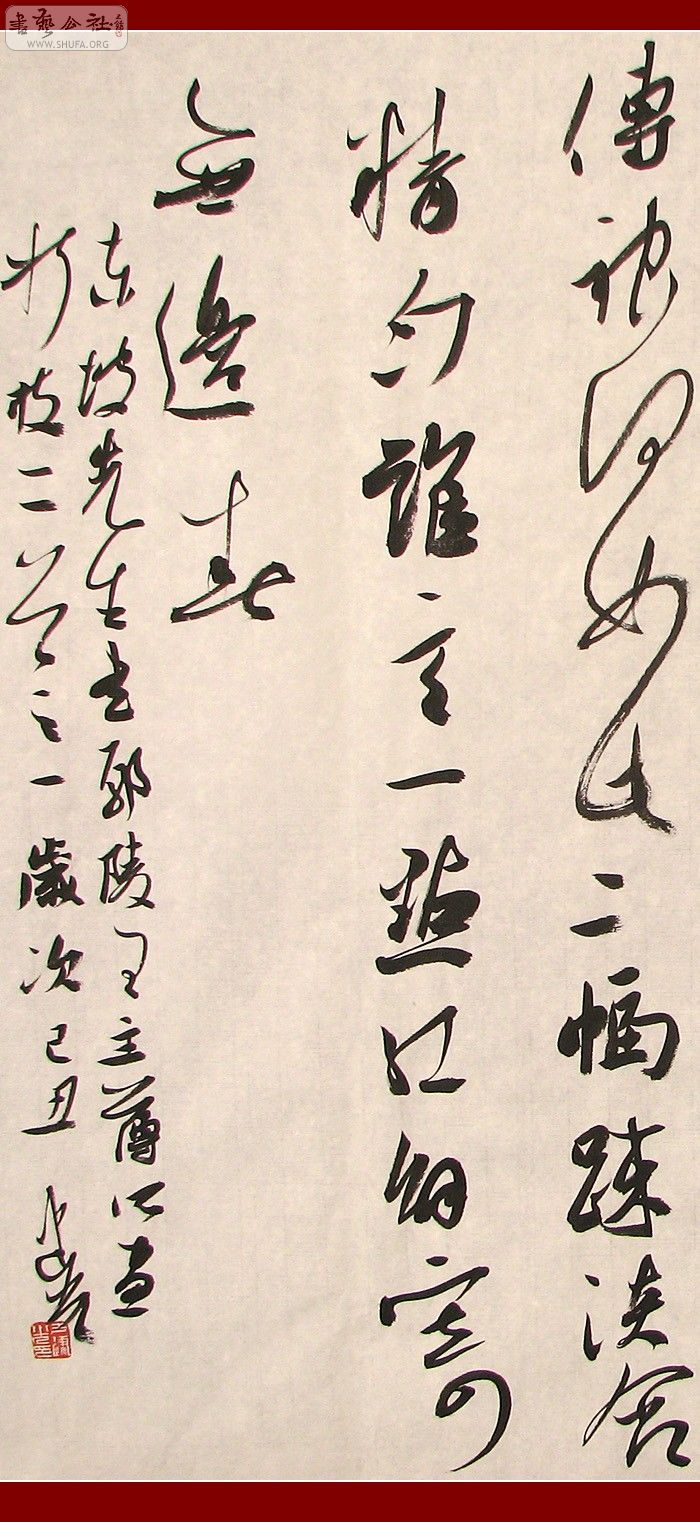 書藝公社
WWW.SHUFA.ORG
傳神何如此二幅踈淡含
精勻誰言一點紅解寄
無邊春
東坡先生書鄢陵王主簿所畫
折枝二首之一歲次己丑